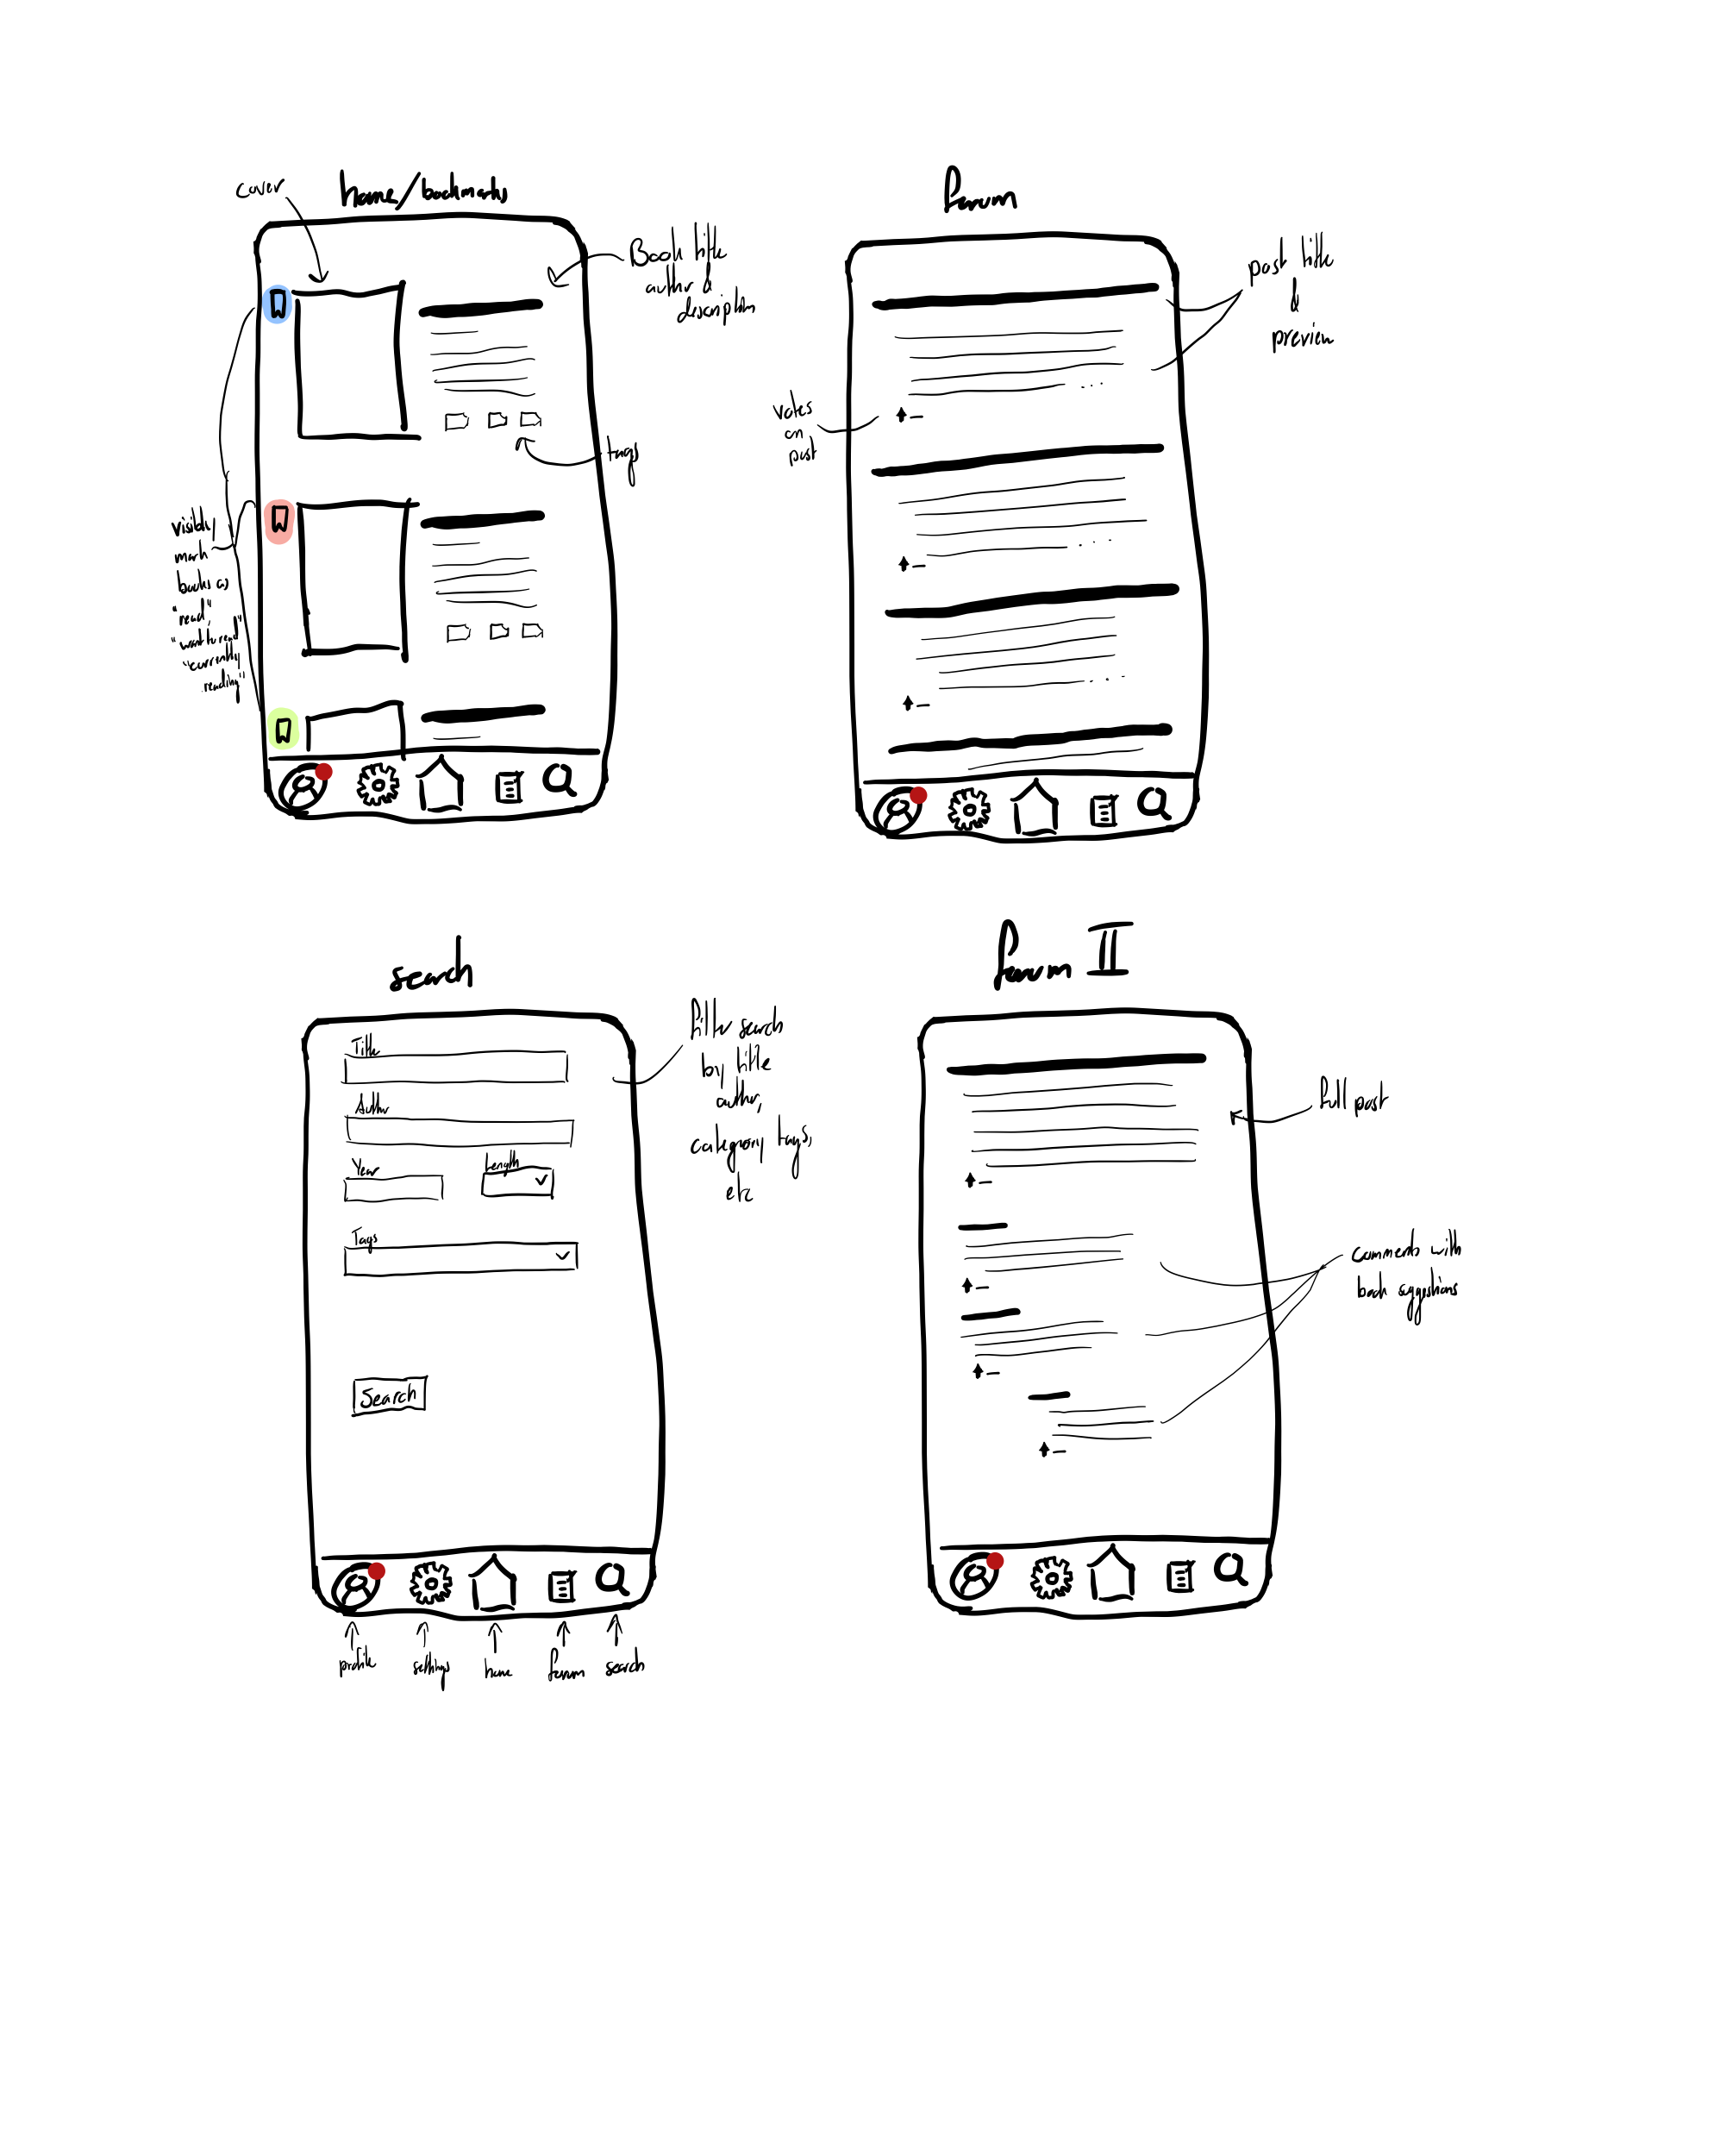 home/bookmarks
cover
Book title
author &
description
tags
visibly
mark
books as
"read",
"want to read"
"currently
reading"
forum
post title
&
preview
votes
on
post
search
Title
Author
Year
Length
Tags
Search
filter search
by title
author,
category tags,
etc
profile
settings
home
forum
search
forum II
full post
comments with
book suggestions